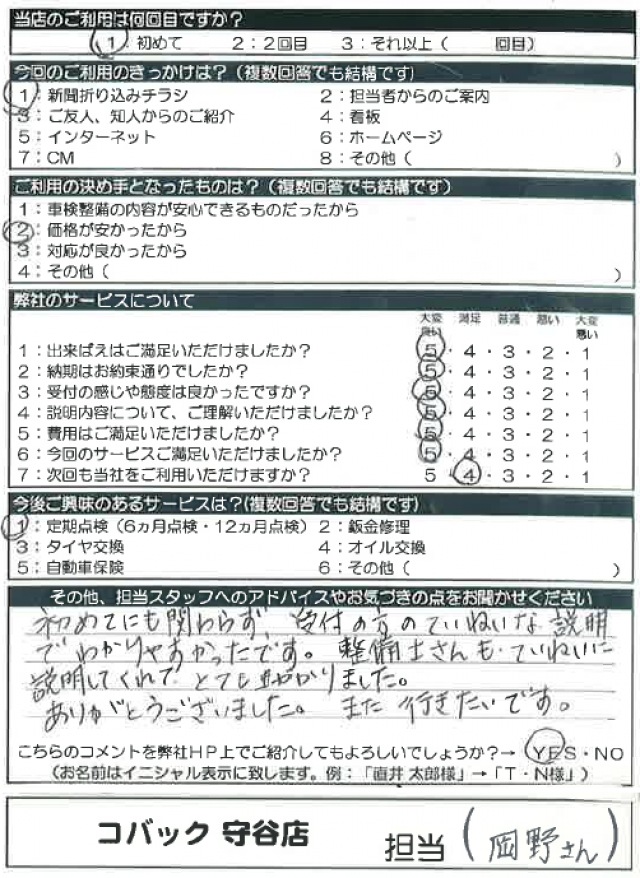 当店のご利用は何回目ですか？
1：初めて 2：2回目 3：それ以上（ 回目）
今回のご利用のきっかけは？（複数回答でも結構です）
1：新聞折り込みチラシ 2：担当者からのご案内
3：ご友人、知人からのご紹介 4：看板
5：インターネット 6：ホームページ
7：CM 8：その他（ ）
ご利用の決め手となったものは？（複数回答でも結構です）
1：車検整備の内容が安心できるものだったから
2：価格が安かったから
3：対応が良かったから
4：その他（ ）
弊社のサービスについて
大変良い 満足 普通 悪い 大変悪い
1：出来ばえはご満足いただけましたか？ 5・4・3・2・1
2：納期はお約束通りでしたか？ 5・4・3・2・1
3：受付の感じや態度は良かったですか？ 5・4・3・2・1
4：説明内容について、ご理解いただけましたか？ 5・4・3・2・1
5：費用はご満足いただけましたか？ 5・4・3・2・1
6：今回のサービスご満足いただけましたか？ 5・4・3・2・1
7：次回も当社をご利用いただけますか？ 5・4・3・2・1
今後ご興味のあるサービスは？（複数回答でも結構です）
1：定期点検（6ヵ月点検・12ヵ月点検） 2：鈑金修理
3：タイヤ交換 4：オイル交換
5：自動車保険 6：その他（ ）
その他、担当スタッフへのアドバイスやお気づきの点をお聞かせください
初めてにも関わらず、受付の方のていねいな説明
でわかりやすかったです。整備士さんも、ていねいに
説明してくれて とても りました。
ありがとうございました。また 行きたいです。
こちらのコメントを弊社HP上でご紹介してもよろしいでしょうか？→ YES・NO
（お名前はイニシャル表示に致します。例：「直井 太郎様」→「T・N様」）
コバック 守谷店 担当（岡野さん）